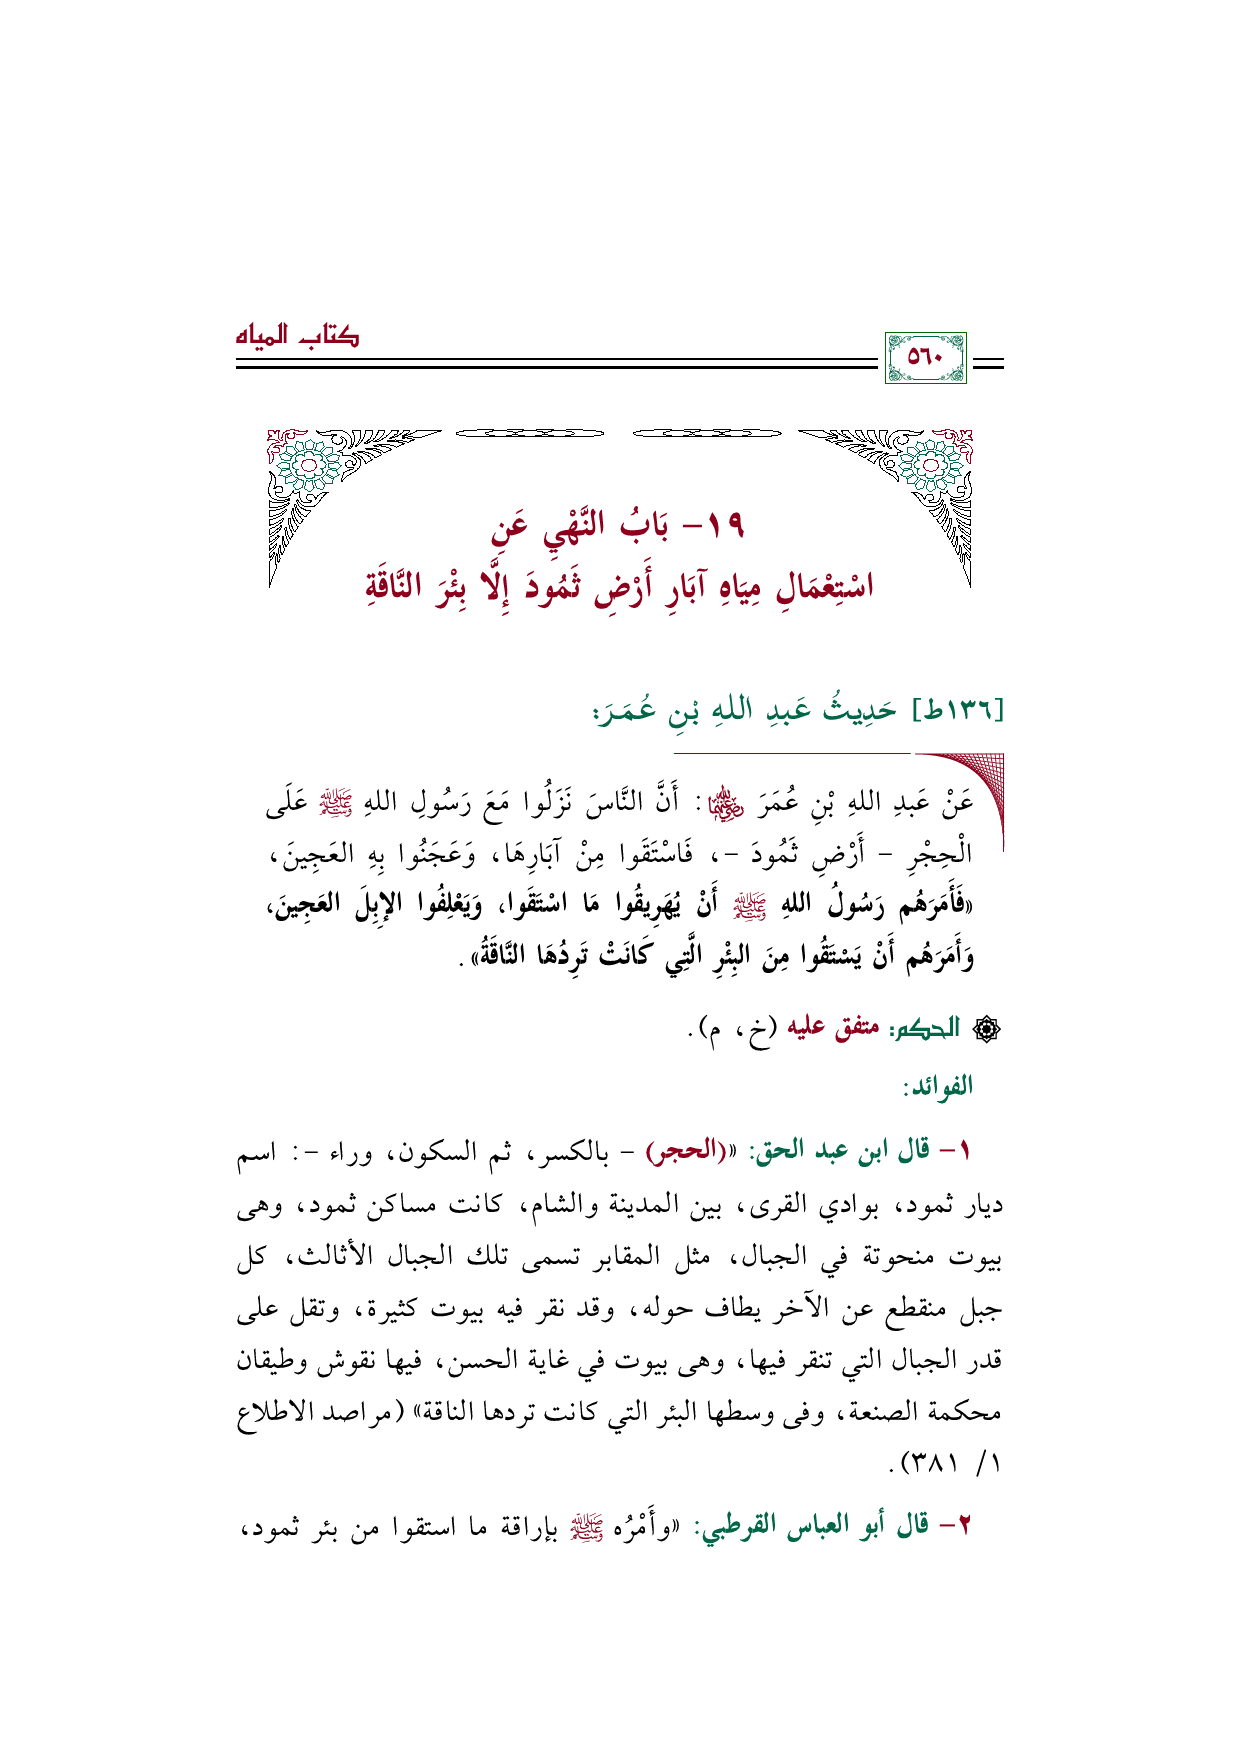 كتاب المياه
٥٦٠
١٩- بَابُ النَّهْيِ عَنِ
اسْتِعْمَالِ مِيَاهِ آبَارِ أَرْضِ ثَمُودَ إِلَّا بِئْرَ النَّاقَةِ
[١٣٦ط] حَدِيثُ عَبدِ اللهِ بْنِ عُمَرَ:
عَنْ عَبدِ اللهِ بْنِ عُمَرَ رضي الله عنهما: أَنَّ النَّاسَ نَزَلُوا مَعَ رَسُولِ اللهِ ﷺ عَلَى
الْحِجْرِ - أَرْضِ ثَمُودَ -، فَاسْتَقَوا مِنْ آبَارِهَا، وَعَجَنُوا بِهِ العَجِينَ،
«فَأَمَرَهُم رَسُولُ اللهِ ﷺ أَنْ يُهَرِيقُوا مَا اسْتَقَوا، وَيَعْلِفُوا الإِبِلَ العَجِينَ،
وَأَمَرَهُم أَنْ يَسْتَقُوا مِنَ البِئْرِ الَّتِي كَانَتْ تَرِدُهَا النَّاقَةُ».
الحكم: متفق عليه (خ، م).
الفوائد:
١- قال ابن عبد الحق: «(الحجر) - بالكسر، ثم السكون، وراء -: اسم
ديار ثمود، بوادي القرى، بين المدينة والشام، كانت مساكن ثمود، وهى
بيوت منحوتة في الجبال، مثل المقابر تسمى تلك الجبال الأثالث، كل
جبل منقطع عن الآخر يطاف حوله، وقد نقر فيه بيوت كثيرة، وتقل على
قدر الجبال التي تنقر فيها، وهى بيوت في غاية الحسن، فيها نقوش وطيقان
محكمة الصنعة، وفى وسطها البئر التي كانت تردها الناقة» (مراصد الاطلاع
١/ ٣٨١).
٢- قال أبو العباس القرطبي: «وأَمْرُه ﷺ بإراقة ما استقوا من بئر ثمود،